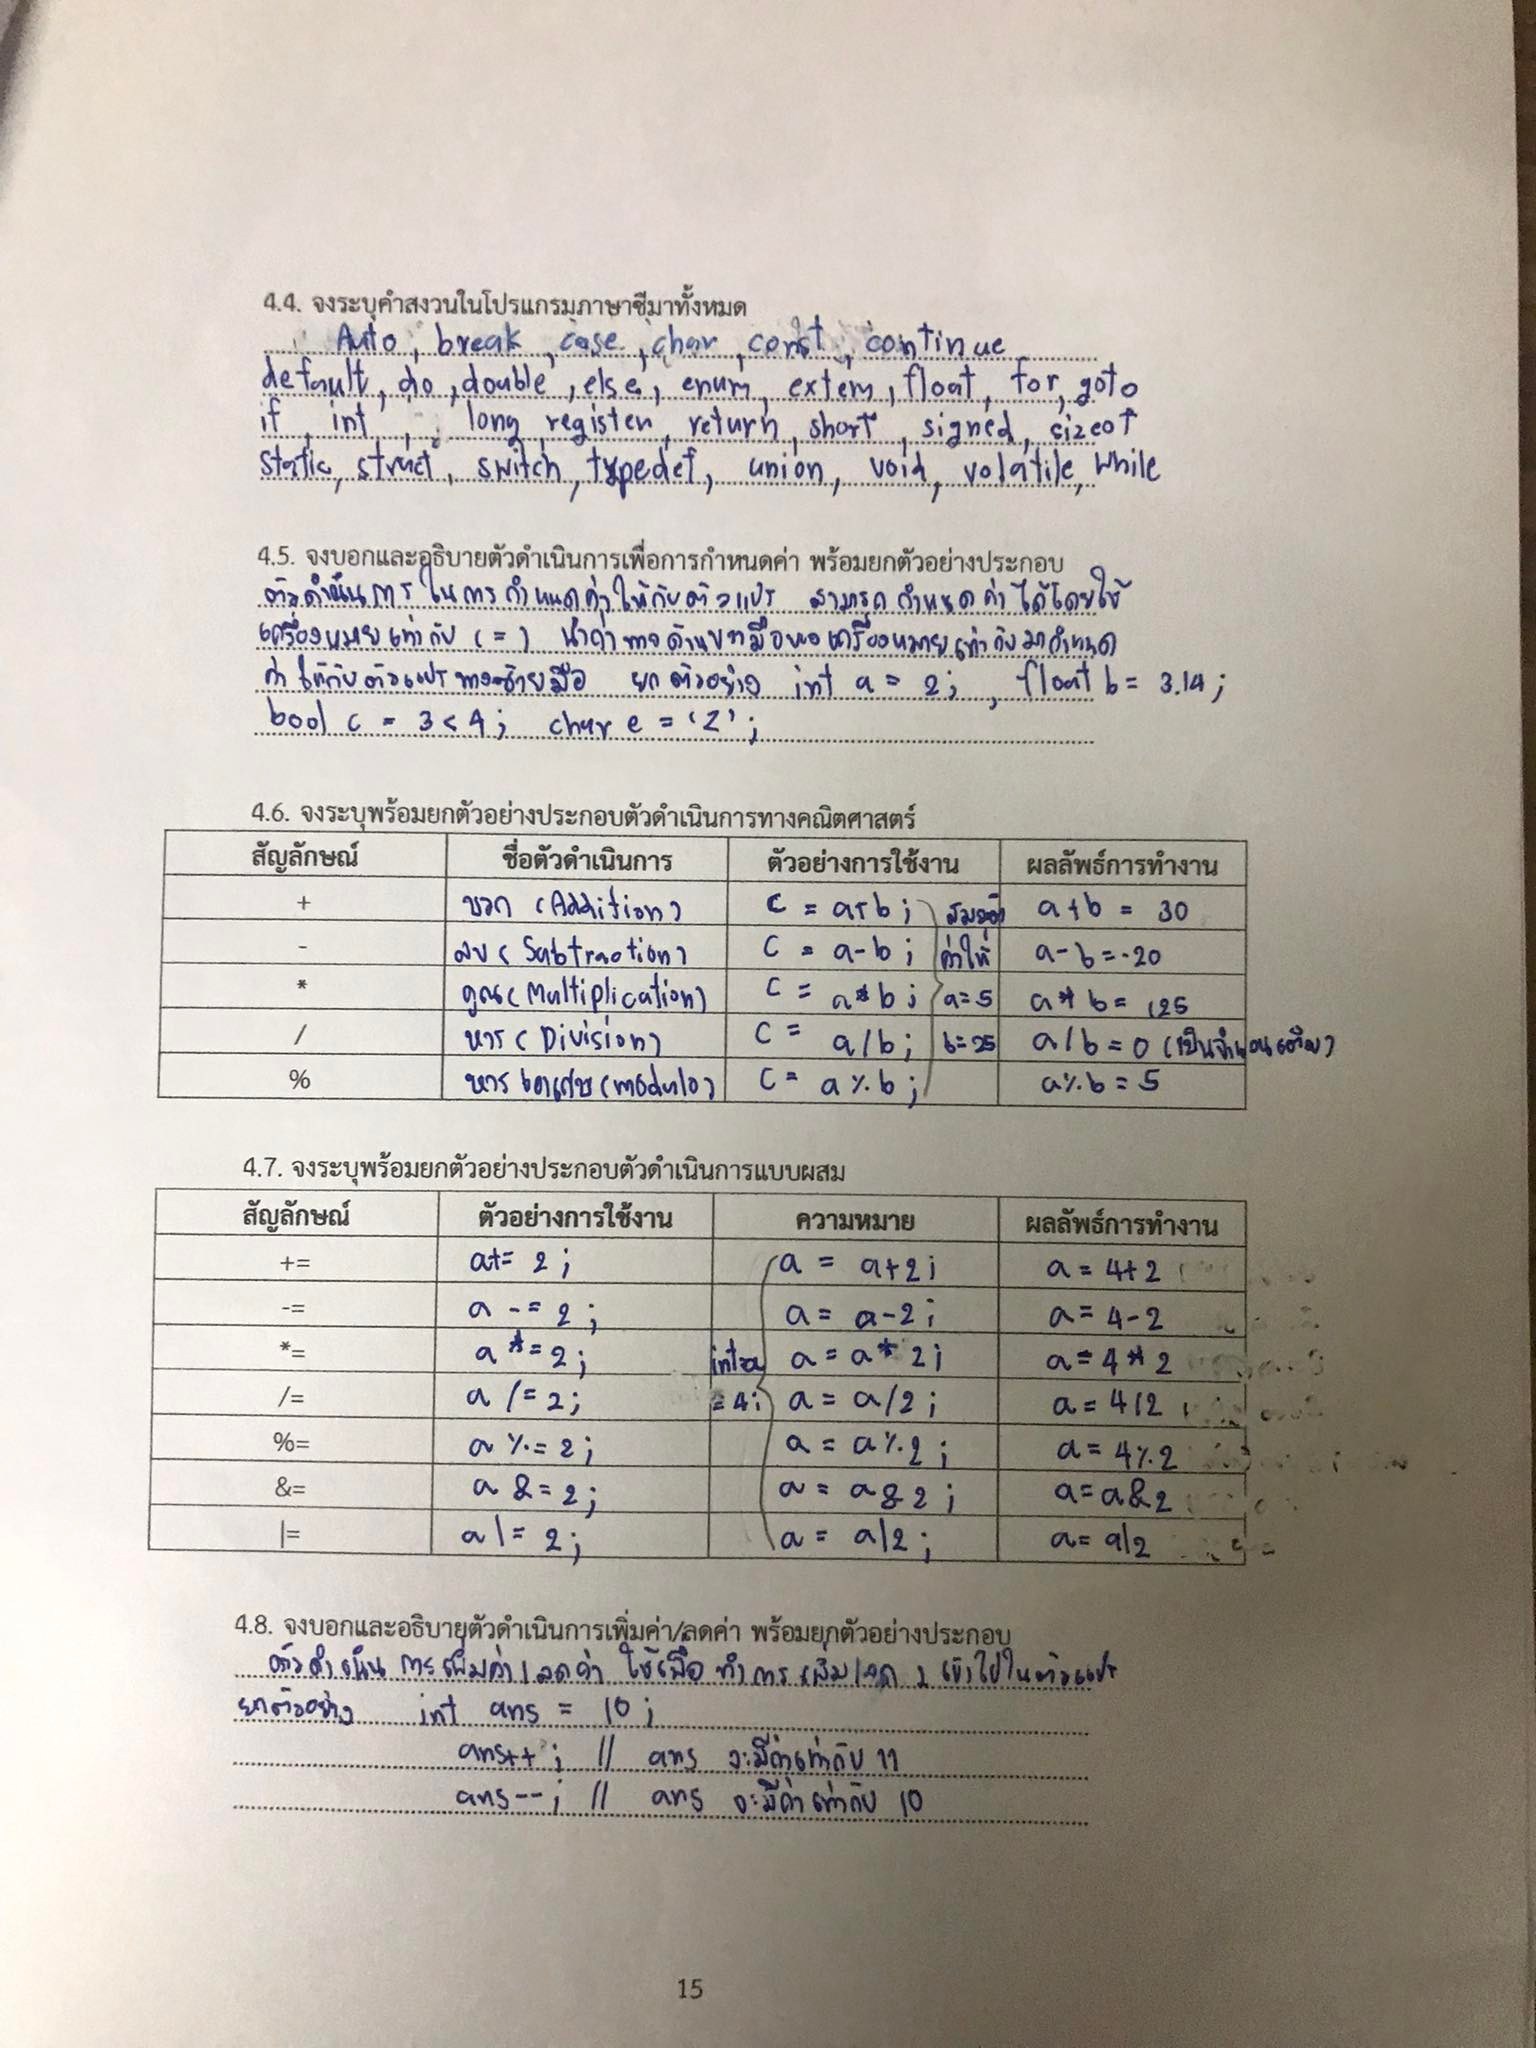 4.4. จงระบุคำสงวนในโปรแกรมภาษาซีมาทั้งหมด
Auto, break, case, char, const, continue
default, do, double, else, enum, extern, float, for, goto
if, int, long, register, return, short, signed, sizeof
static, struct, switch, typedef, union, void, volatile, while
4.5. จงบอกและอธิบายตัวดำเนินการเพื่อการกำหนดค่า พร้อมยกตัวอย่างประกอบ
ตัวดำเนินการในการกำหนดค่าให้กับตัวแปร สามารถกำหนดค่าได้โดยใช้
เครื่องหมายเท่ากับ (=) นำค่าทางด้านขวามือของเครื่องหมายเท่ากับมากำหนด
ค่าให้กับตัวแปรทางซ้ายมือ ยกตัวอย่าง int a = 2; , float b = 3.14;
bool c = 3<4; char e = '2';
4.6. จงระบุพร้อมยกตัวอย่างประกอบตัวดำเนินการทางคณิตศาสตร์
สัญลักษณ์ ชื่อตัวดำเนินการ ตัวอย่างการใช้งาน ผลลัพธ์การทำงาน
+ บวก (Addition) C = a+b; สมมติ a+b = 30
- ลบ (Subtraction) C = a-b; ค่าให้ a-b = -20
* คูณ (Multiplication) C = a*b; a=5 a*b = 125
/ หาร (Division) C = a/b; b=25 a/b = 0 (เป็นจำนวนเต็ม)
% หารเอาเศษ (modulo) C = a%b; a%b = 5
4.7. จงระบุพร้อมยกตัวอย่างประกอบตัวดำเนินการแบบผสม
สัญลักษณ์ ตัวอย่างการใช้งาน ความหมาย ผลลัพธ์การทำงาน
+= a+= 2; a = a+2; a = 4+2
-= a -= 2; a = a-2; a = 4-2
*= a *= 2; int a a = a*2; a = 4*2
/= a /= 2; = 4; a = a/2; a = 4/2
%= a %= 2; a = a%2; a = 4%2
&= a &= 2; a = a&2; a = a&2
|= a |= 2; a = a|2; a = a|2
4.8. จงบอกและอธิบายตัวดำเนินการเพิ่มค่า/ลดค่า พร้อมยกตัวอย่างประกอบ
ตัวดำเนินการเพิ่มค่า/ลดค่า ใช้เพื่อทำการเพิ่ม/ลด 1 เข้าไปในตัวแปร
ยกตัวอย่าง int ans = 10;
ans++; // ans จะมีค่าเท่ากับ 11
ans--; // ans จะมีค่าเท่ากับ 10
15